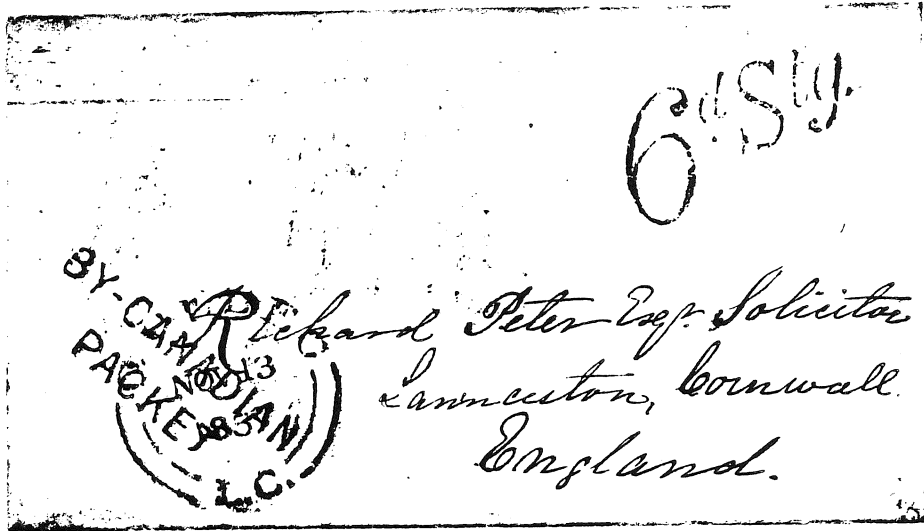 6d Stg.
BY-CANADIAN
PACKET
NO 13
L.C.
Richard Peter Esqr. Solicitor
Launceston, Cornwall
England.